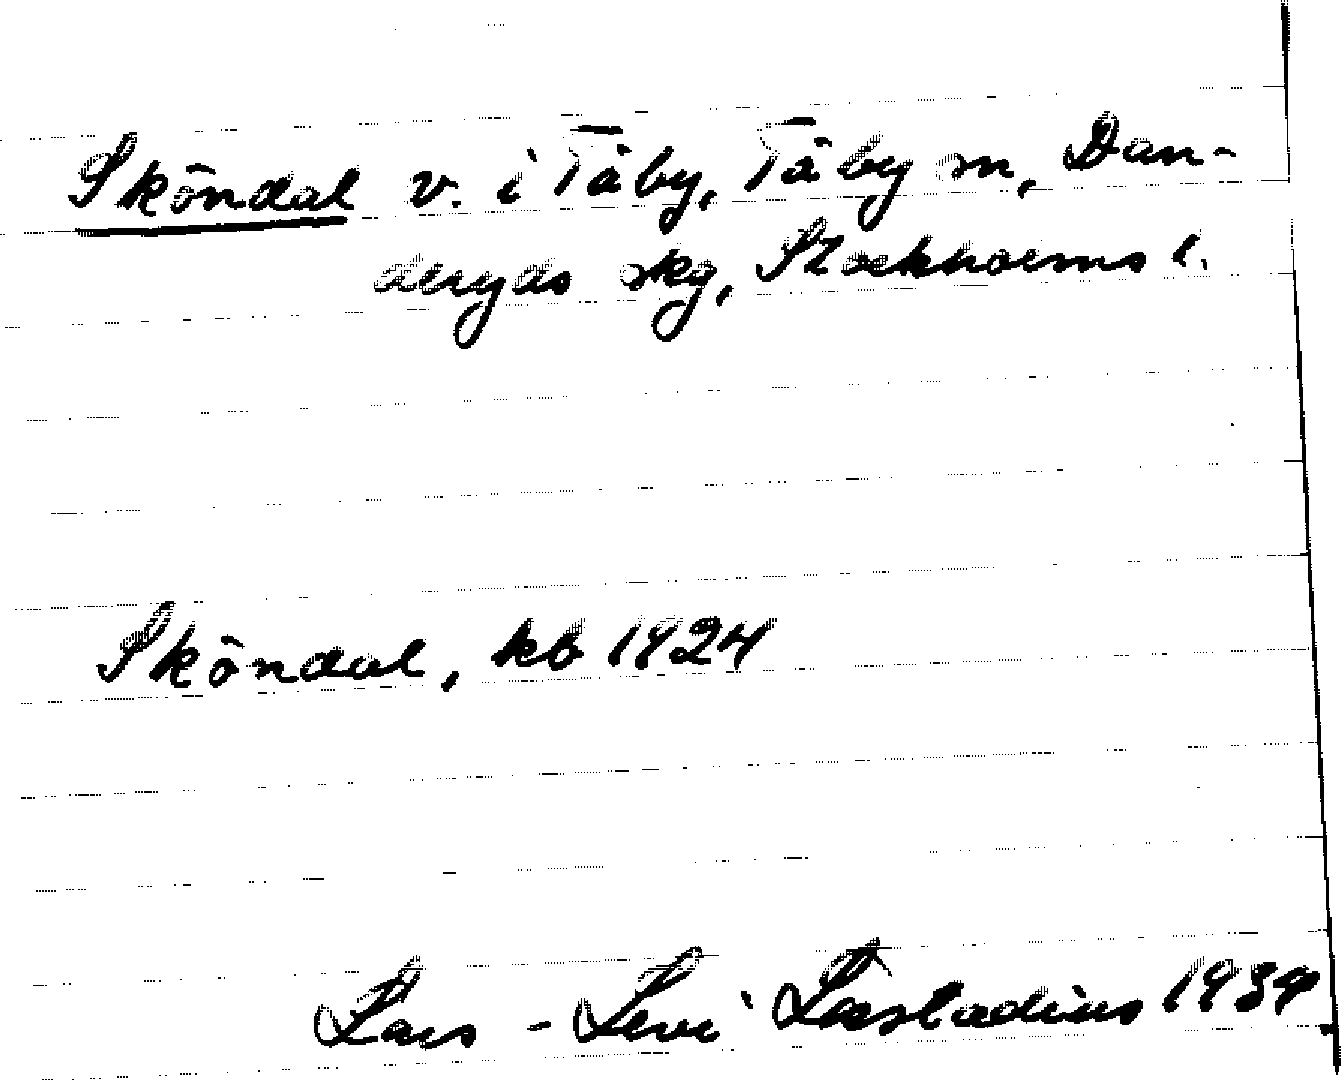 Sköndal v. i Täby, Täby sn, Dan-
deryds skg, Stockholms l.
Sköndal, kb 1924
Lars-Levi Læstadius 1939.